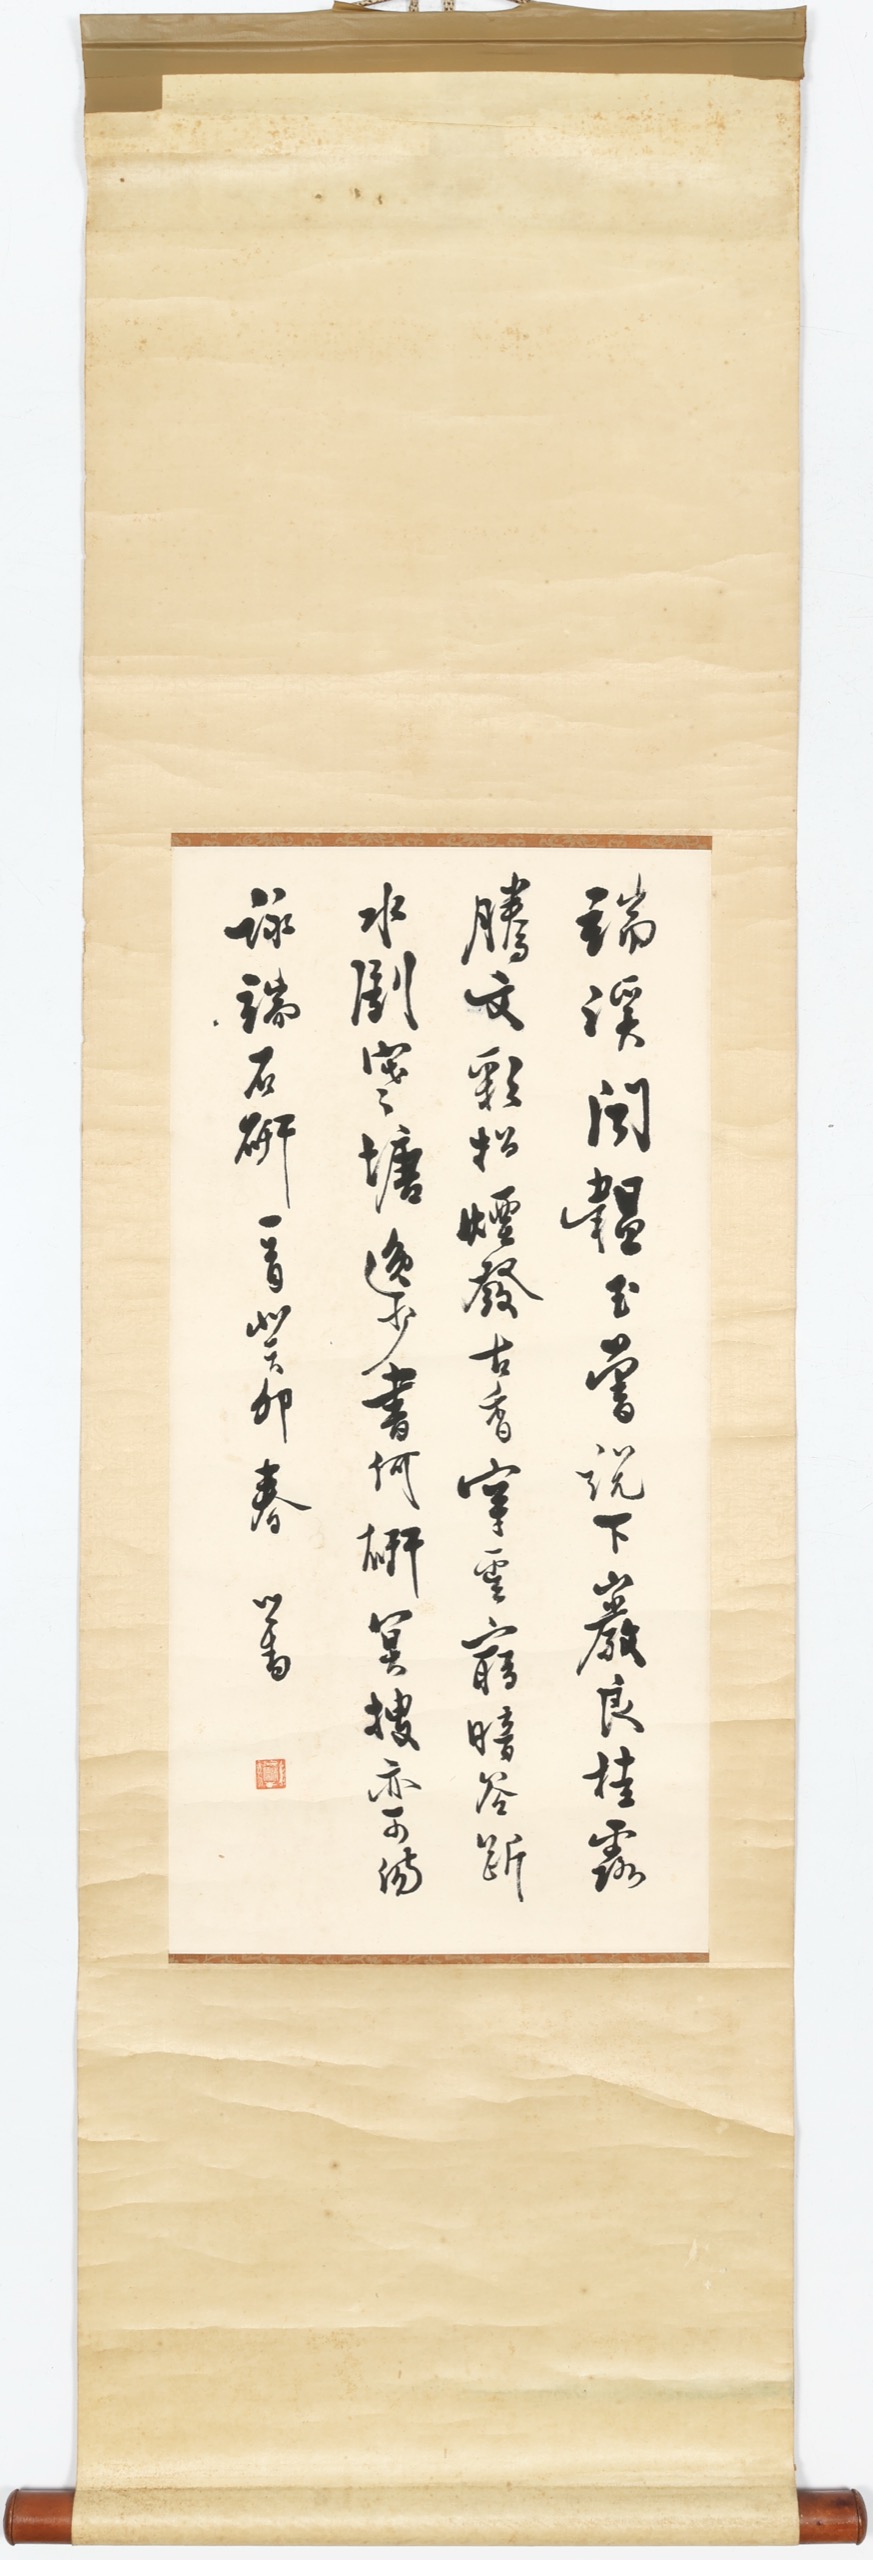 端溪聞韞玉嘗說下巖良桂露
騰文彩松煙發古香穿雲窮暗谷斷
水劚寒塘逸少書何研冥搜亦可傷
詠端石研一首癸卯春 心畬